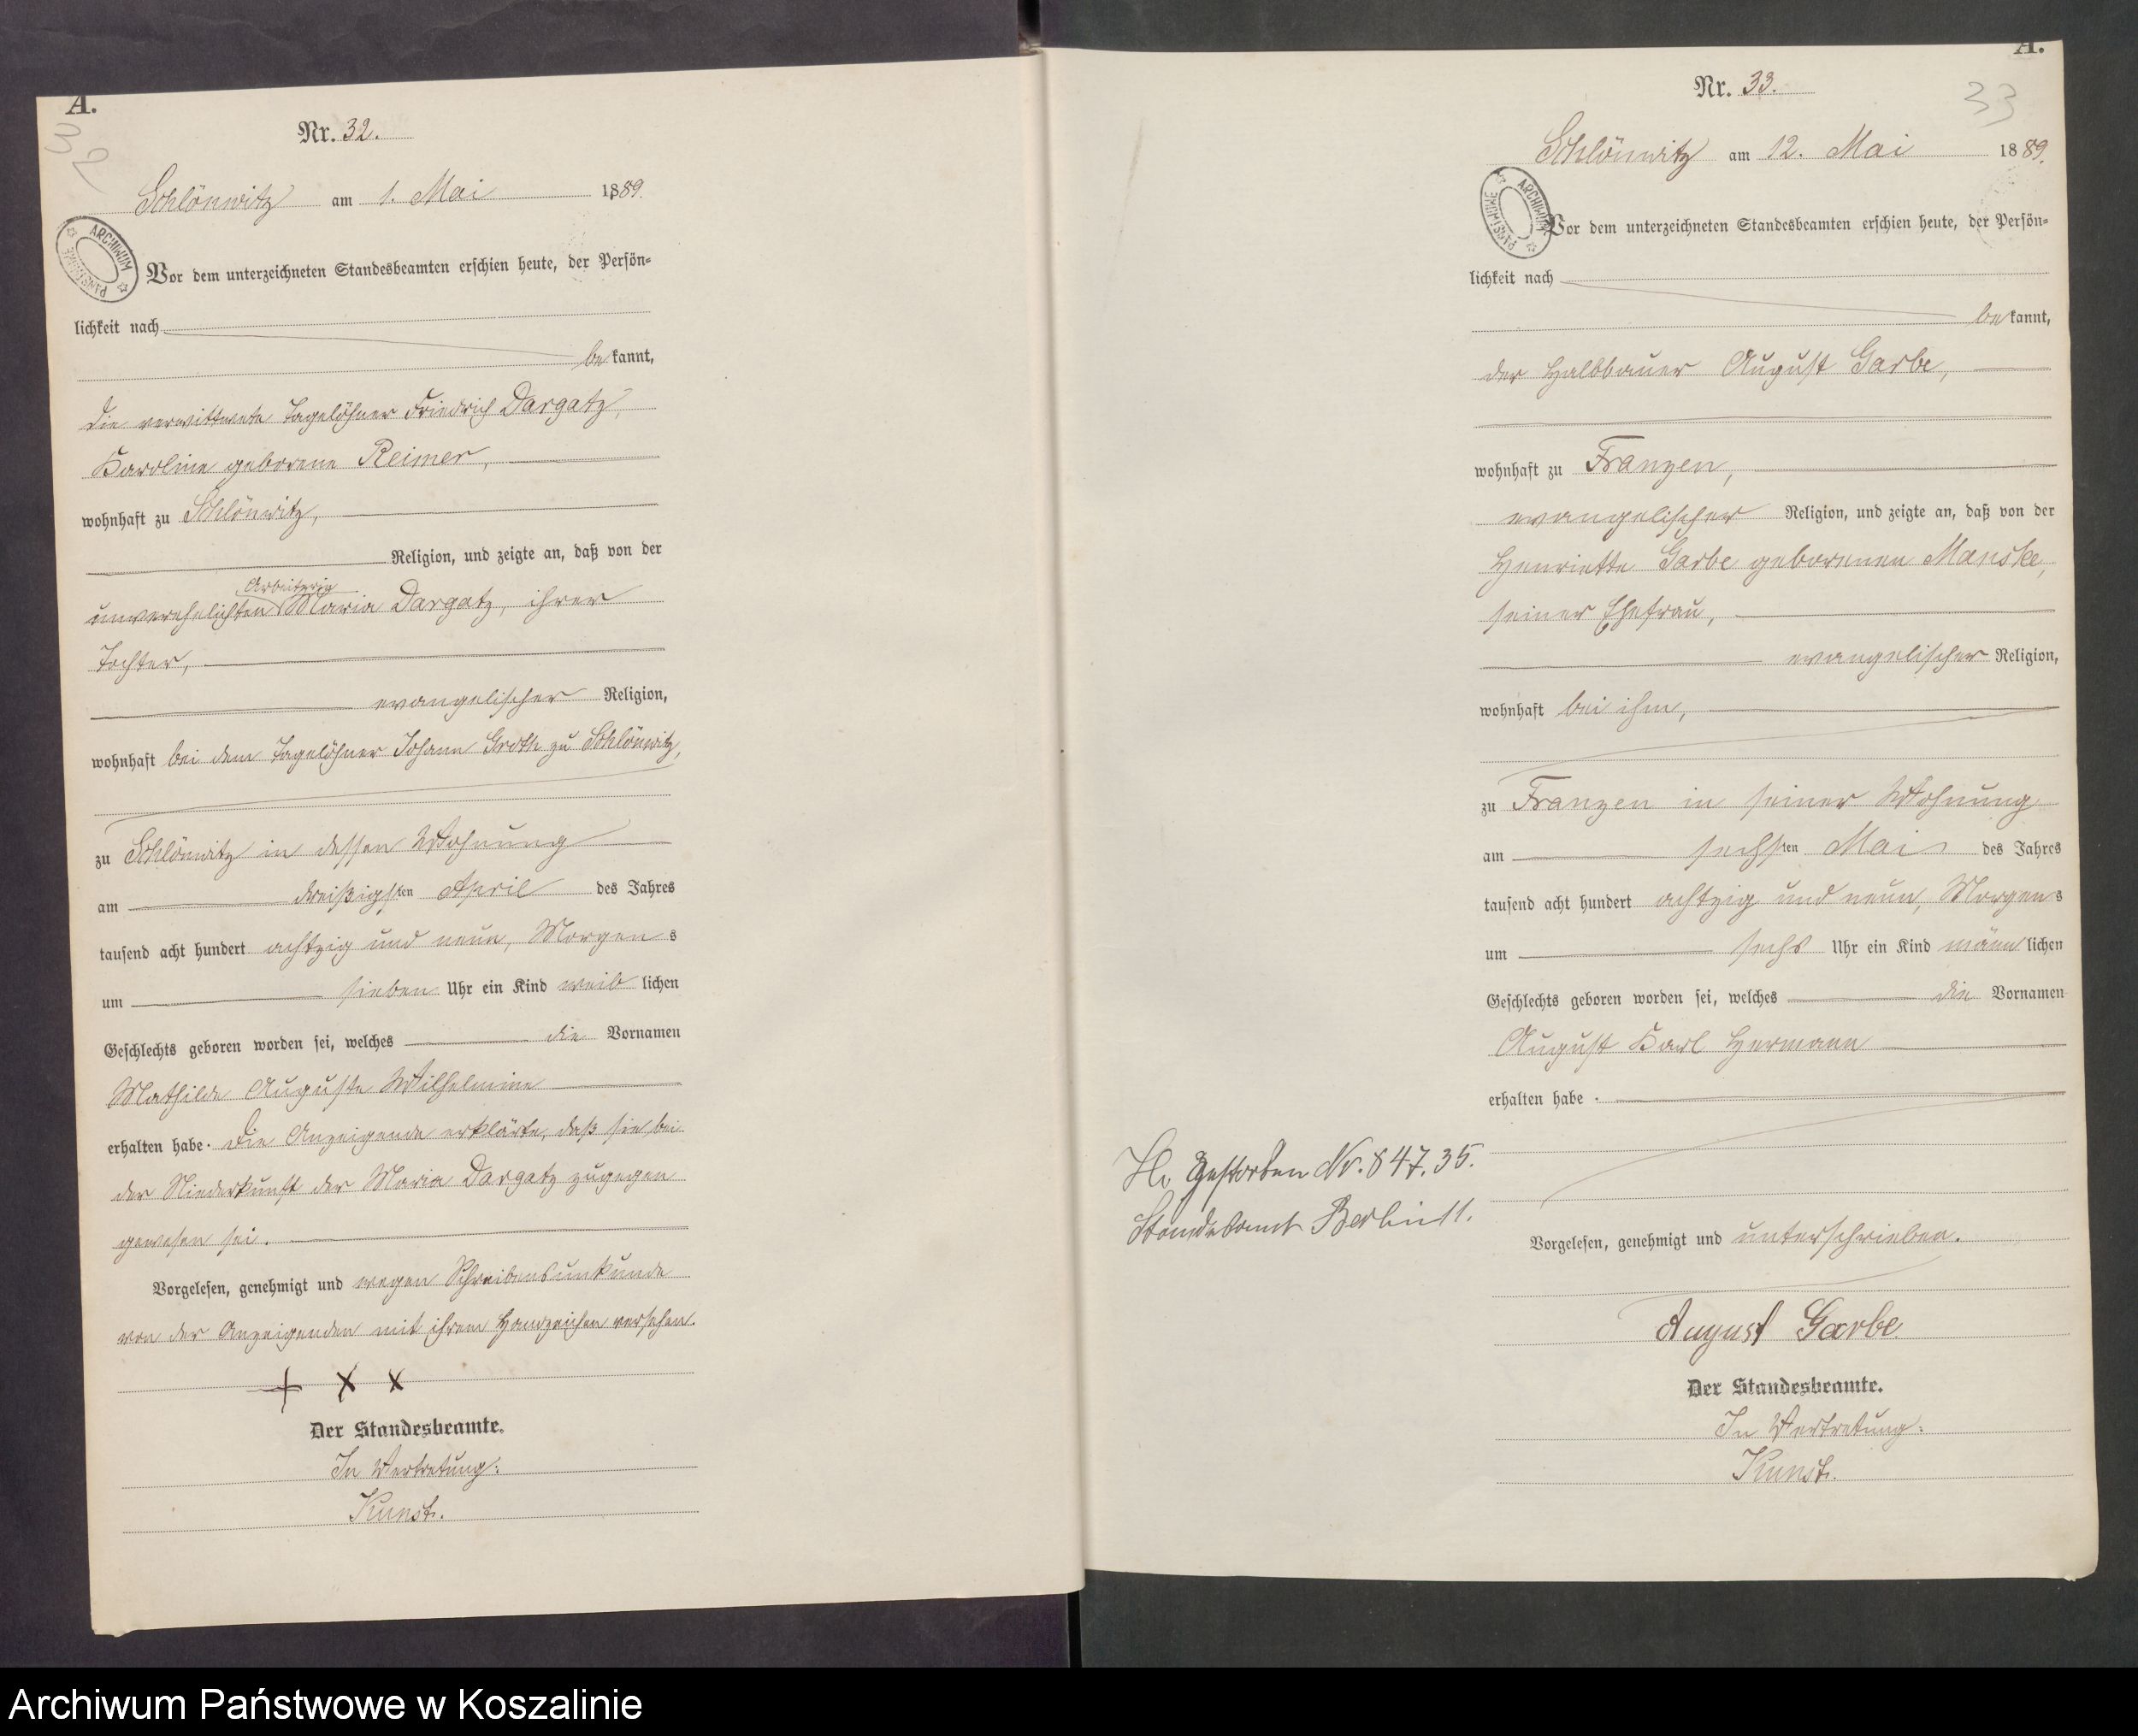 A.
32
Nr. 32.
Schlönwitz am 1. Mai 1889.
ARCHIWUM PAŃSTWOWE
Vor dem unterzeichneten Standesbeamten erschien heute, der Persön-
lichkeit nach
bekannt,
die verwittwete Tagelöhner Friedrich Dargatz,
Karoline geborene Reimer,
wohnhaft zu Schlönwitz,
Religion, und zeigte an, daß von der
Arbeiterin
unverehelichten Maria Dargatz, ihrer
Tochter,
evangelischer Religion,
wohnhaft bei dem Tagelöhner Johann Groth zu Schlönwitz,
zu Schlönwitz in dessen Wohnung
am dreißigsten April des Jahres
tausend acht hundert achtzig und neun, Morgens
um sieben Uhr ein Kind weiblichen
Geschlechts geboren worden sei, welches die Vornamen
Mathilde Auguste Wilhelmine
erhalten habe. Die Anzeigende erklärte, daß sie bei
der Niederkunft der Maria Dargatz zugegen
gewesen sei.
Vorgelesen, genehmigt und wegen Schreibensunkunde
von der Anzeigenden mit ihrem Handzeichen versehen.
+ x x
Der Standesbeamte.
In Vertretung:
Kunst.
A.
33
Nr. 33.
Schlönwitz am 12. Mai 1889.
ARCHIWUM PAŃSTWOWE
Vor dem unterzeichneten Standesbeamten erschien heute, der Persön-
lichkeit nach
bekannt,
der Halbbauer August Garbe,
wohnhaft zu Franzen,
evangelischer Religion, und zeigte an, daß von der
Henriette Garbe geborenen Manske,
seiner Ehefrau,
evangelischer Religion,
wohnhaft bei ihm,
zu Franzen in seiner Wohnung
am sechsten Mai des Jahres
tausend acht hundert achtzig und neun, Morgens
um sechs Uhr ein Kind männlichen
Geschlechts geboren worden sei, welches die Vornamen
August Karl Hermann
erhalten habe.
H. Gestorben Nr. 847.35.
Standesamt Berlin 11.
Vorgelesen, genehmigt und unterschrieben.
August Garbe
Der Standesbeamte.
In Vertretung:
Kunst.
Archiwum Państwowe w Koszalinie